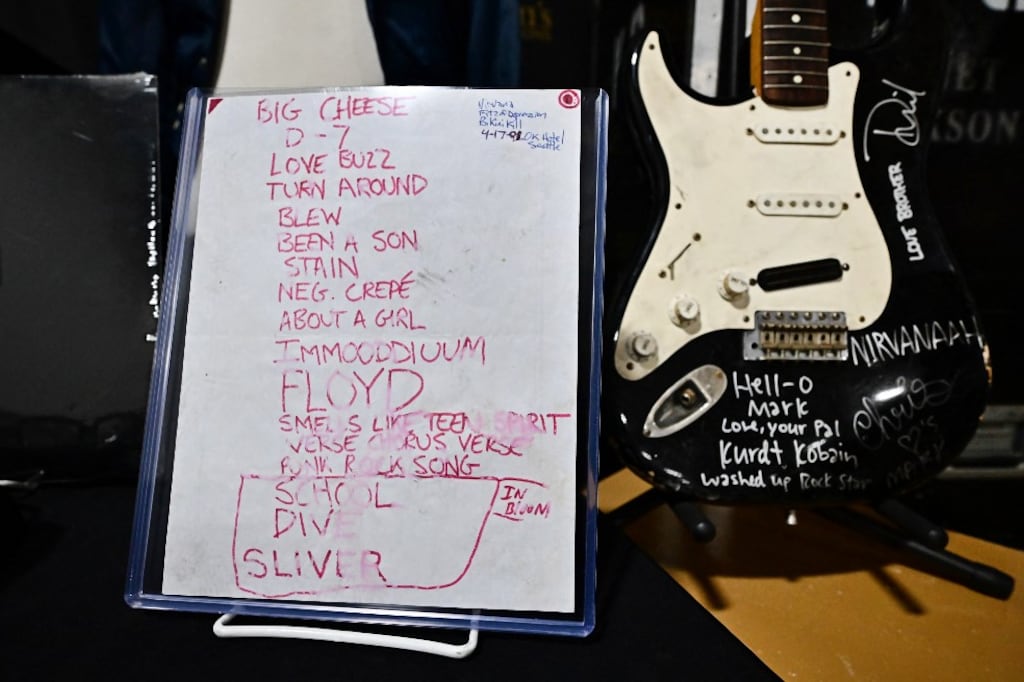 BIG CHEESE
D-7
LOVE BUZZ
TURN AROUND
BLEW
BEEN A SON
STAIN
NEG. CREPÉ
ABOUT A GIRL
IMMOODDIUUM
FLOYD
SMELLS LIKE TEEN SPIRIT
VERSE CHORUS VERSE
PUNK ROCK SONG
SCHOOL
DIVE
SLIVER
IN
BLOOM
Nirvana
Fitz of Depression
Bikini Kill
4-17-91 OK Hotel
Seattle
LOVE BROTHER
NIRVANAAH
Hell-o
Mark
Love, your Pal
Kurdt Kobain
washed up Rock Star